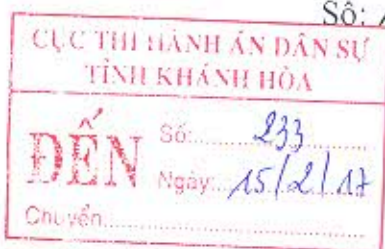 Số:
CỤC THI HÀNH ÁN DÂN SỰ
TỈNH KHÁNH HÒA
ĐẾN
Số:........233........
Ngày:..15/2/17
Chuyển........................